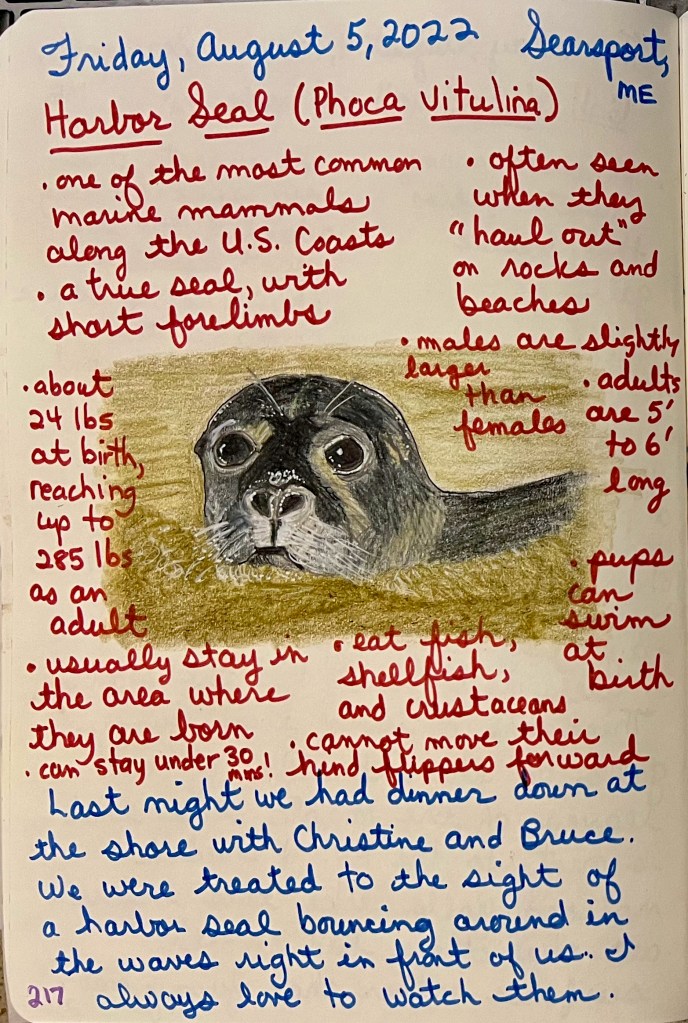 Friday, August 5, 2022 Searsport,
ME
Harbor Seal (Phoca vitulina)
• one of the most common
marine mammals
along the U.S. Coasts
• a true seal, with
short forelimbs
• often seen
when they
"haul out"
on rocks and
beaches
• males are slightly
larger
than
females
• adults
are 5'
to 6'
long
• about
24 lbs
at birth,
reaching
up to
285 lbs
as an
adult
• pups
can
swim
at
birth
• usually stay in
the area where
they are born
• eat fish,
shellfish,
and crustaceans
• can stay under 30
mins!
• cannot move their
hind flippers forward
Last night we had dinner down at
the shore with Christine and Bruce.
We were treated to the sight of
a harbor seal bouncing around in
the waves right in front of us. I
always love to watch them.
217